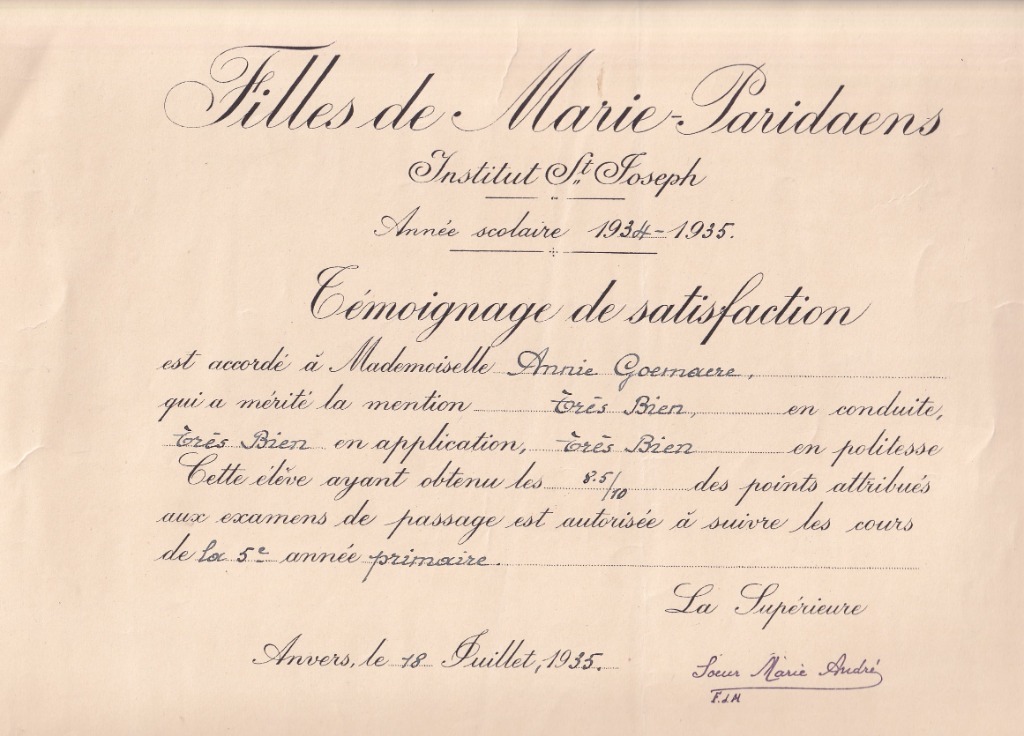 Filles de Marie-Paridaens
Institut St Joseph
Année scolaire 1934-1935.
Témoignage de satisfaction
est accordé à Mademoiselle Annie Goemaere,
qui a mérité la mention Très Bien, en conduite,
Très Bien en application, Très Bien en politesse
Cette élève ayant obtenu les 8.5/10 des points attribués
aux examens de passage est autorisée à suivre les cours
de la 5e année primaire.
La Supérieure
Anvers, le 18 Juillet, 1935.
Soeur Marie André
F.d.M